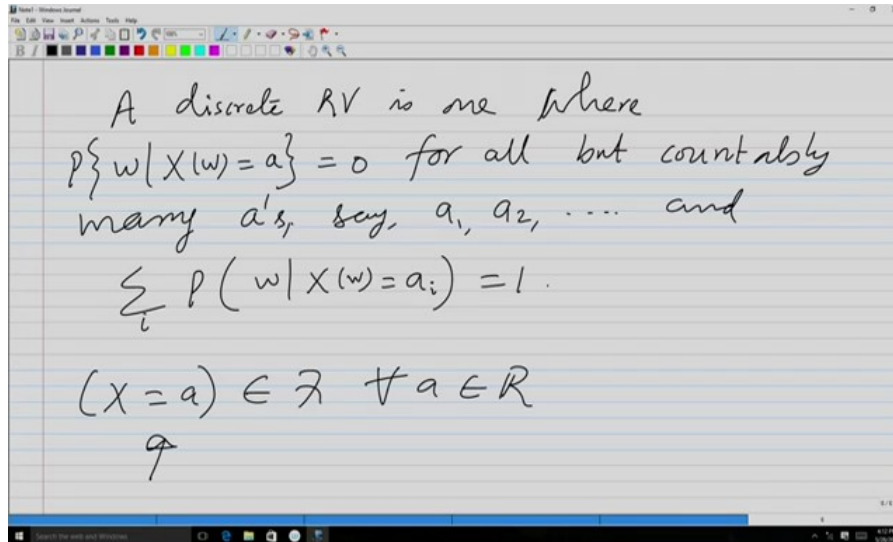 Note1 - Windows Journal
File Edit View Insert Actions Tools Help
A discrete RV is one where
P{w|X(w)=a} = 0 for all but countably
many a's, say, a₁, a₂, .... and
∑ᵢ P(w|X(w)=aᵢ) = 1.
(X=a) ∈ ℱ ∀ a ∈ R
Search the web and Windows